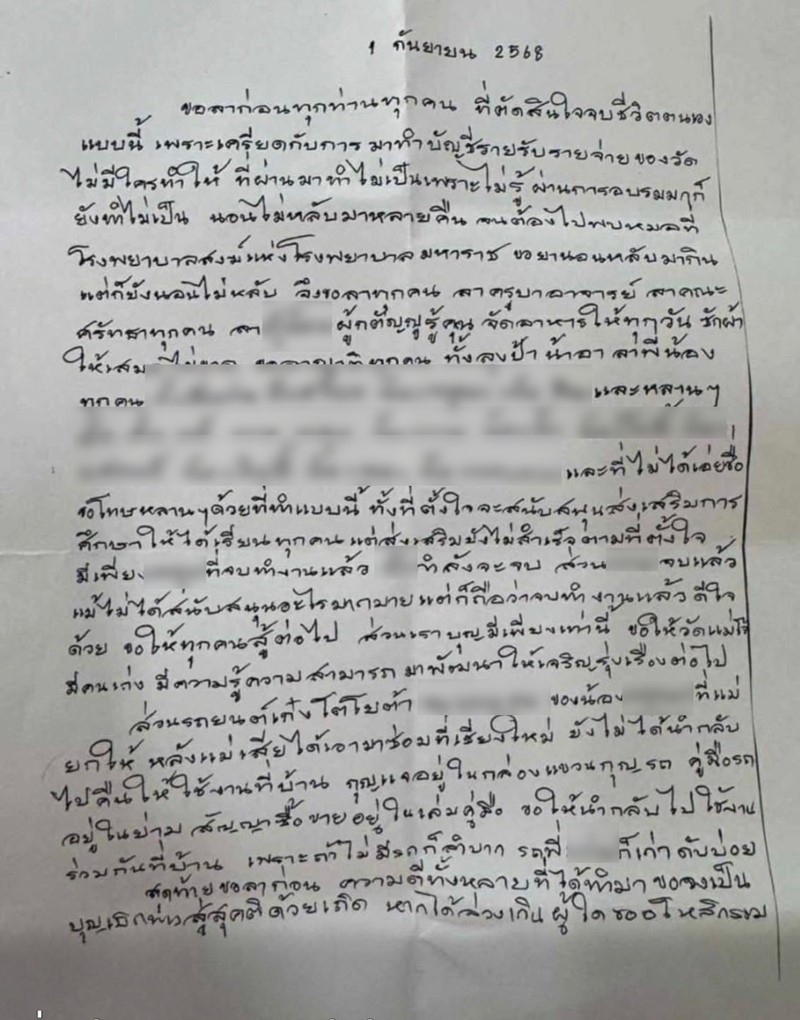 ๑ กันยายน 2568
ขอลาก่อนทุกท่านทุกคน ที่ตัดสินใจจบชีวิตตนเอง
แบบนี้ เพราะเครียดกับการ มาทำบัญชีรายรับรายจ่ายของวัด
ไม่มีใครทำให้ ที่ผ่านมาทำไม่เป็นเพราะไม่รู้ ผ่านการอบรมมาก็
ยังทำไม่เป็น นอนไม่หลับมาหลายคืน จนต้องไปพบหมอที่
โรงพยาบาลสงฆ์แห่งโรงพยาบาลมหาราช ขอยานอนหลับมากิน
แต่ก็ยังนอนไม่หลับ จึงขอลาทุกคน ลาครูบาอาจารย์ ลาคณะ
ศรัทธาทุกคน ลา ผู้กตัญญูรู้คุณ จัดอาหารให้ทุกวัน ซักผ้า
ให้เสมอ ทุกคน ทั้งลุงป้า น้าอา ลาพี่น้อง
ทุกคน และหลานๆ
และที่ไม่ได้เอ่ยชื่อ
ขอโทษหลานๆด้วยที่ทำแบบนี้ ทั้งที่ตั้งใจจะสนับสนุนส่งเสริมการ
ศึกษาให้ได้เรียนทุกคน แต่ส่งเสริมยังไม่สำเร็จตามที่ตั้งใจ
มีเพียง ที่จบทำงานแล้ว กำลังจะจบ ส่วน จบแล้ว
แม้ไม่ได้สนับสนุนอะไรมากมาย แต่ก็ถือว่าจบทำงานแล้ว ดีใจ
ด้วย ขอให้ทุกคนสู้ต่อไป ส่วนเราบุญมีเพียงเท่านี้ ขอให้วัดแม่
มีคนเก่ง มีความรู้ความสามารถ มาพัฒนาให้เจริญรุ่งเรืองต่อไป
ส่วนรถยนต์เก๋งโตโยต้า ของน้อง ที่แม่
ยกให้ หลังแม่เสียได้เอามาซ่อมที่เชียงใหม่ ยังไม่ได้นำกลับ
ไปคืนให้ใช้งานที่บ้าน กุญแจอยู่ในกล่องแขวนกุญรถ คู่มือรถ
อยู่ในย่าม สัญญาซื้อขายอยู่ในเล่มคู่มือ ขอให้นำกลับไปใช้งาน
ร่วมกันที่บ้าน เพราะถ้าไม่มีรถก็ลำบาก รถพี่ ก็เก่า ดับบ่อย
สุดท้ายขอลาก่อน ความดีทั้งหลายที่ได้ทำมา ขอจงเป็น
สู่สุคติด้วยเถิด หากได้ล่วงเกินผู้ใด ขออโหสิกรรม